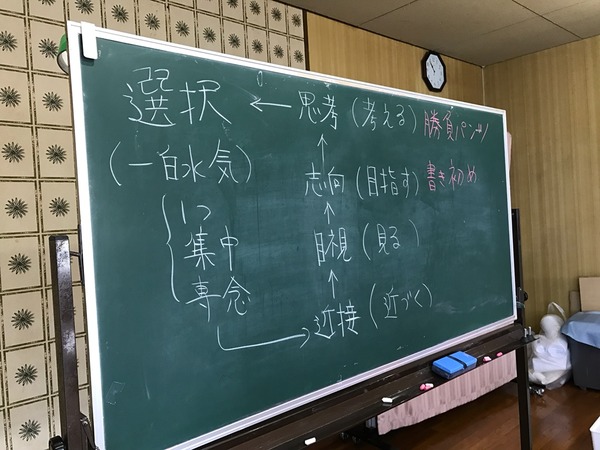 選択 ← 思考 (考える) 勝負パンツ
↑
(一白水気) 志向 (目指す) 書き初め
↑
1つ
集中 目視 (見る)
↑
専念 → 近接 (近づく)